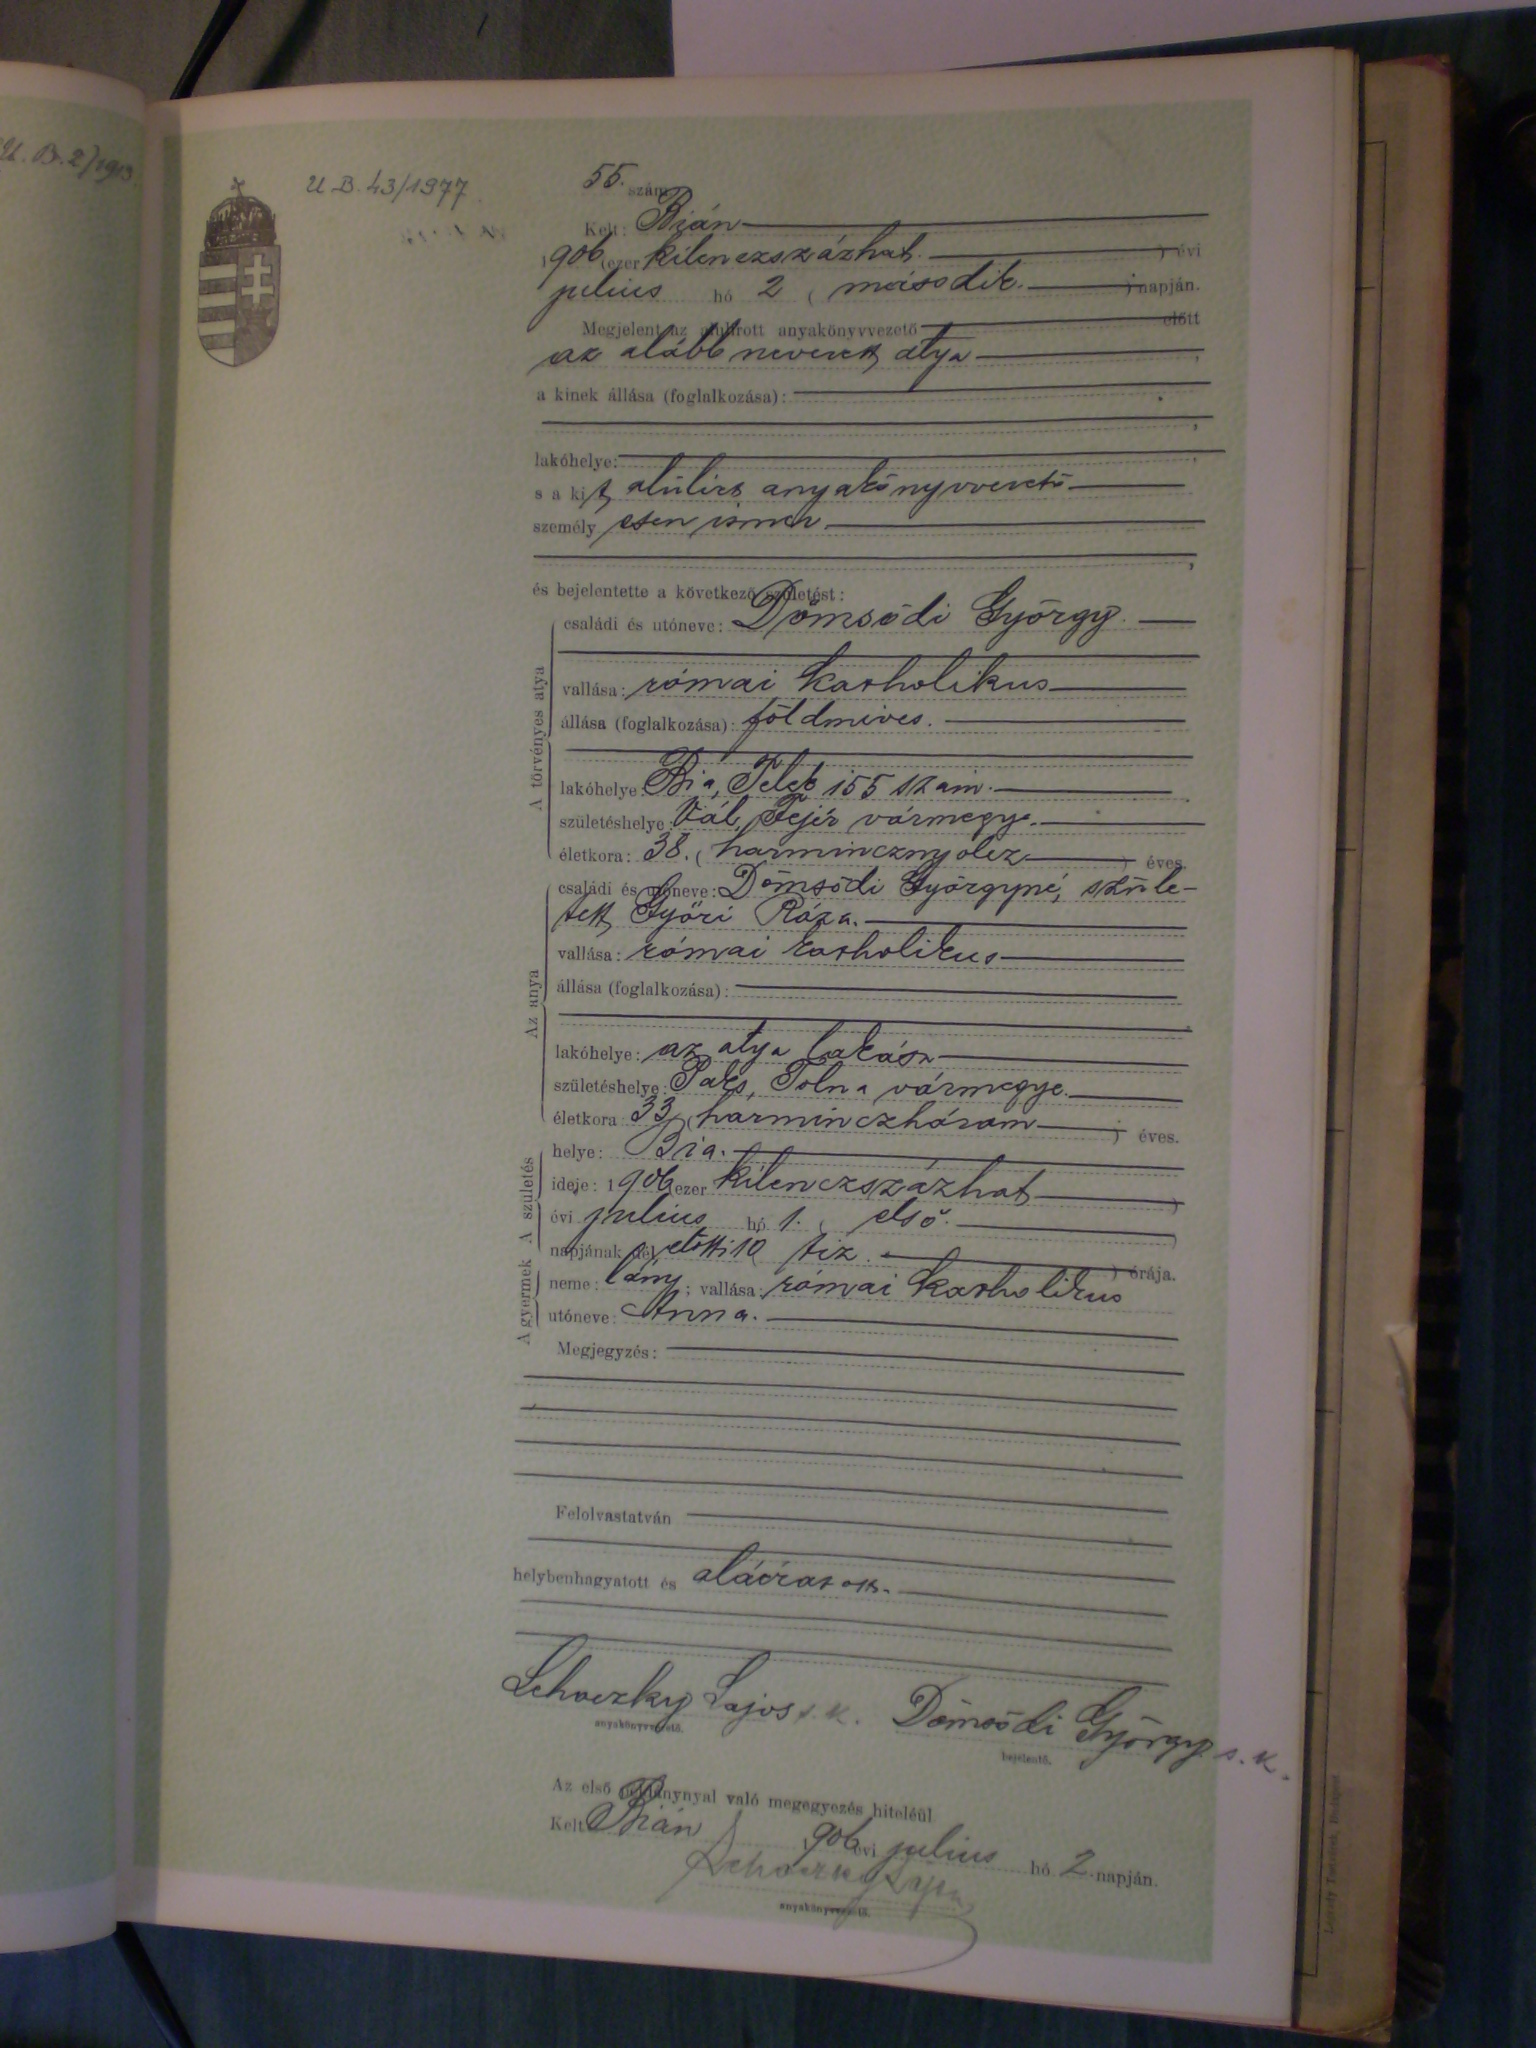 U. B. 2/1913
U. B. 43/1977.
55. szám
Kelt: Bián
1906 (ezer kilenczszázhat. ) évi
julius hó 2 ( második. ) napján.
Megjelent az alulírott anyakönyvvezető előtt
az alább nevezett atya ,
a kinek állása (foglalkozása):
lakóhelye:
s a kit alúlirt anyakönyvvezető
személy esen ismer
és bejelentette a következő születést:
A törvényes atya
családi és utóneve: Dömsödi György.
vallása: római katholikus
állása (foglalkozása): földmives.
lakóhelye: Bia, Telek 155 szám.
születéshelye: Vál, Fejér vármegye.
életkora: 38. ( harmincznyolcz ) éves.
Az anya
családi és utóneve: Dömsödi Györgyné, szüle-
tett Győri Róza.
vallása: római katholikus
állása (foglalkozása):
lakóhelye: az atya lakása
születéshelye: Paks, Tolna vármegye.
életkora 33 ( harminczhárom ) éves.
A születés
helye: Bia.
ideje: 1906 (ezer kilenczszázhat )
évi julius hó 1. ( első. )
napjának dél előtti 10 ( tiz. ) órája.
A gyermek
neme: lány; vallása: római katholikus
utóneve: Anna.
Megjegyzés:
Felolvastatván
helybenhagyatott és aláiratott.
Lehoczky Lajos s. k. Dömsödi György s. k.
anyakönyvvezető. bejelentő.
Az első példánynyal való megegyezés hiteléül
Kelt Bián 1906 évi julius hó 2 napján.
Lehoczky Lajos
anyakönyvvezető.